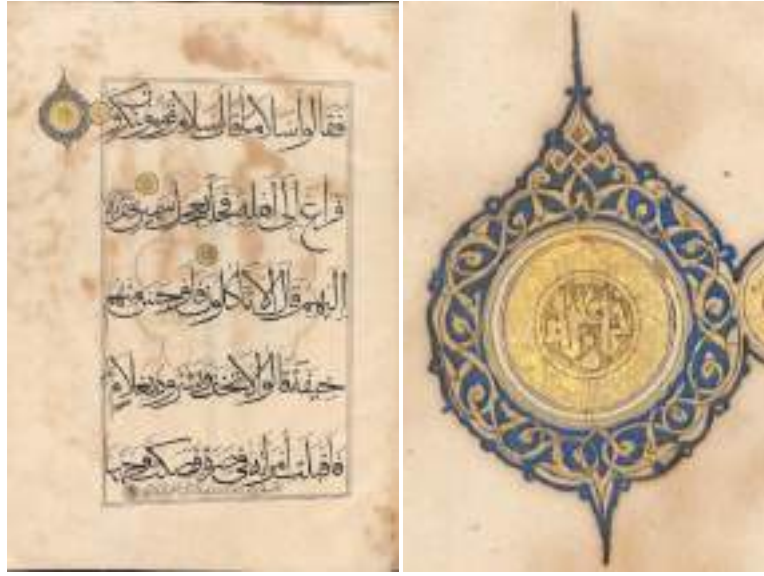 فقالوا سلاما قال سلام قوم منكرون
فراغ إلى أهله فجاء بعجل سمين فقربه
إليهم قال ألا تأكلون فأوجس منهم
خيفة قالوا لا تخف وبشروه بغلام
فأقبلت امرأته في صرة فصكت وجهها